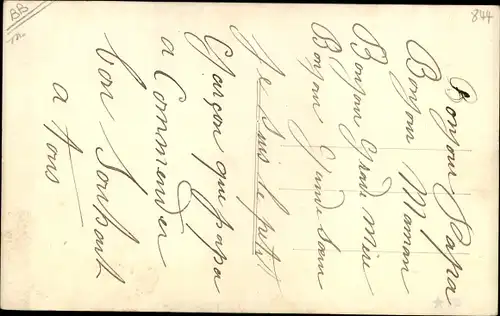 Bonjour Papa
Bonjour Maman
Bonjour Grande Mère
Bonjour Grande Sœur
Je suis le ptit
Garçon que papa
a Commender
bon Souhait
a tous
844
BB